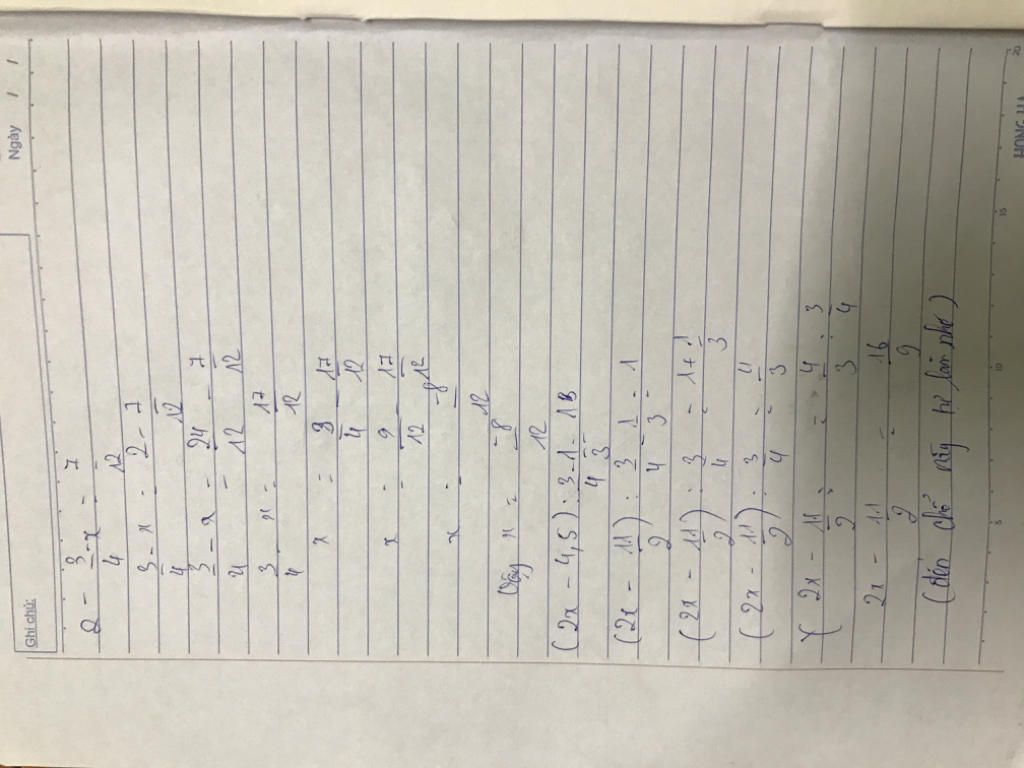 Ngày / /
Ghi chú:
2 - 3/4 - x = 7/12
3/4 - x = 2 - 7/12
3/4 - x = 24/12 - 7/12
3/4 - x = 17/12
x = 3/4 - 17/12
x = 9/12 - 17/12
x = -8/12
Vậy x = -8/12
(2x - 4,5) : 3/4 - 1/3 = 1
(2x - 11/2) : 3/4 - 1/3 = 1
(2x - 11/2) : 3/4 = 1 + 1/3
(2x - 11/2) : 3/4 = 4/3
2x - 11/2 = 4/3 : 3/4
2x - 11/2 = 16/9
(đến chỗ này tự làm nhé)
5 10 15 20